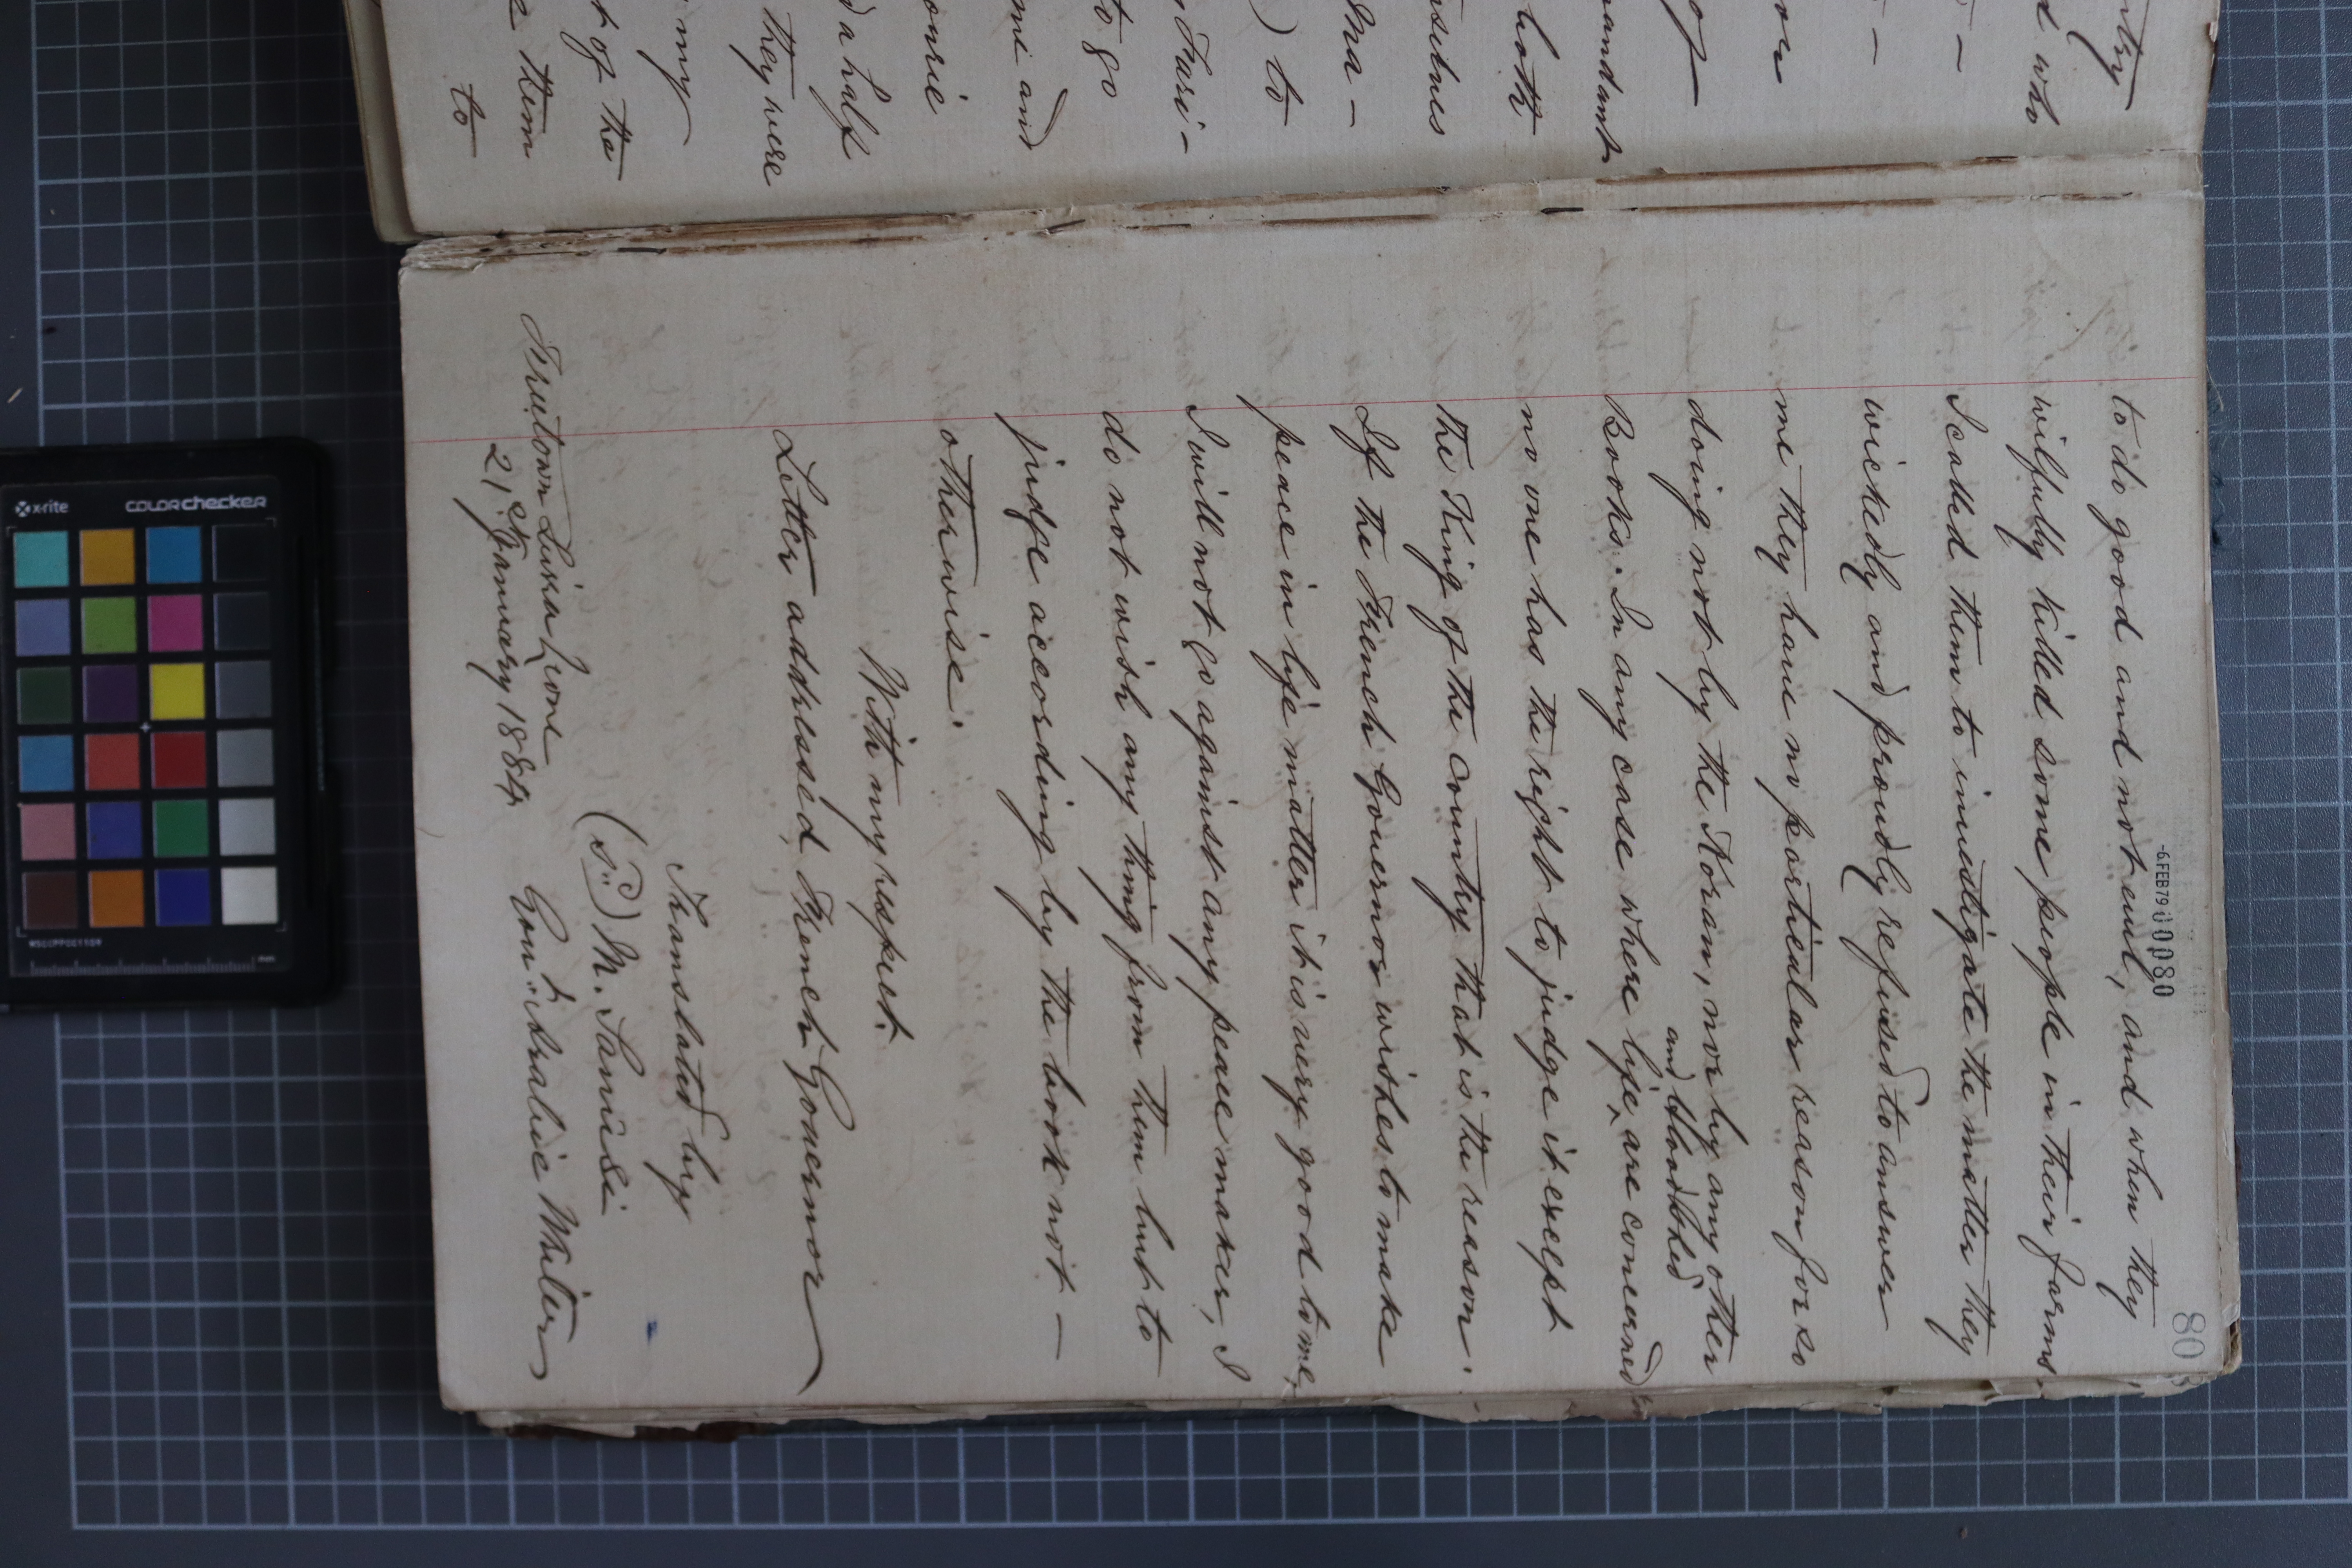 ntry
d who
or
of
mandant
both
rselves
) to
to go
me and
d a half
they were
my
t of the
them
to
80
-6.FEB79 00080
to do good and not evil, and when they
wilfully killed some people in their farms.
I called them to investigate the matter they
wickedly and proudly refused to answer
me they have no particular reason for so
doing not by the Koran, nor by any other
and bloodshed
Books. In any case where life ^ are concerned
no one has the right to judge it except
the King of the Country that is the reason.
If the French Governor wishes to make
peace in life matter it is very good to me,
I will not go against any peace maker, I
do not wish any thing from them but to
judge according by the book not —
otherwise.
With my respect.
Letter addressed French Governor
Translated by
(s:d) M. Sanusi
Gov:t Arabic Writer
Freetown Sierra Leone
21st January 1884
x-rite
COLORchecker